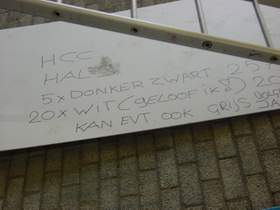 HCC
HAL
5x DONKER ZWART 25
20x WIT (GELOOF IK)
KAN EVT. OOK GRIJS